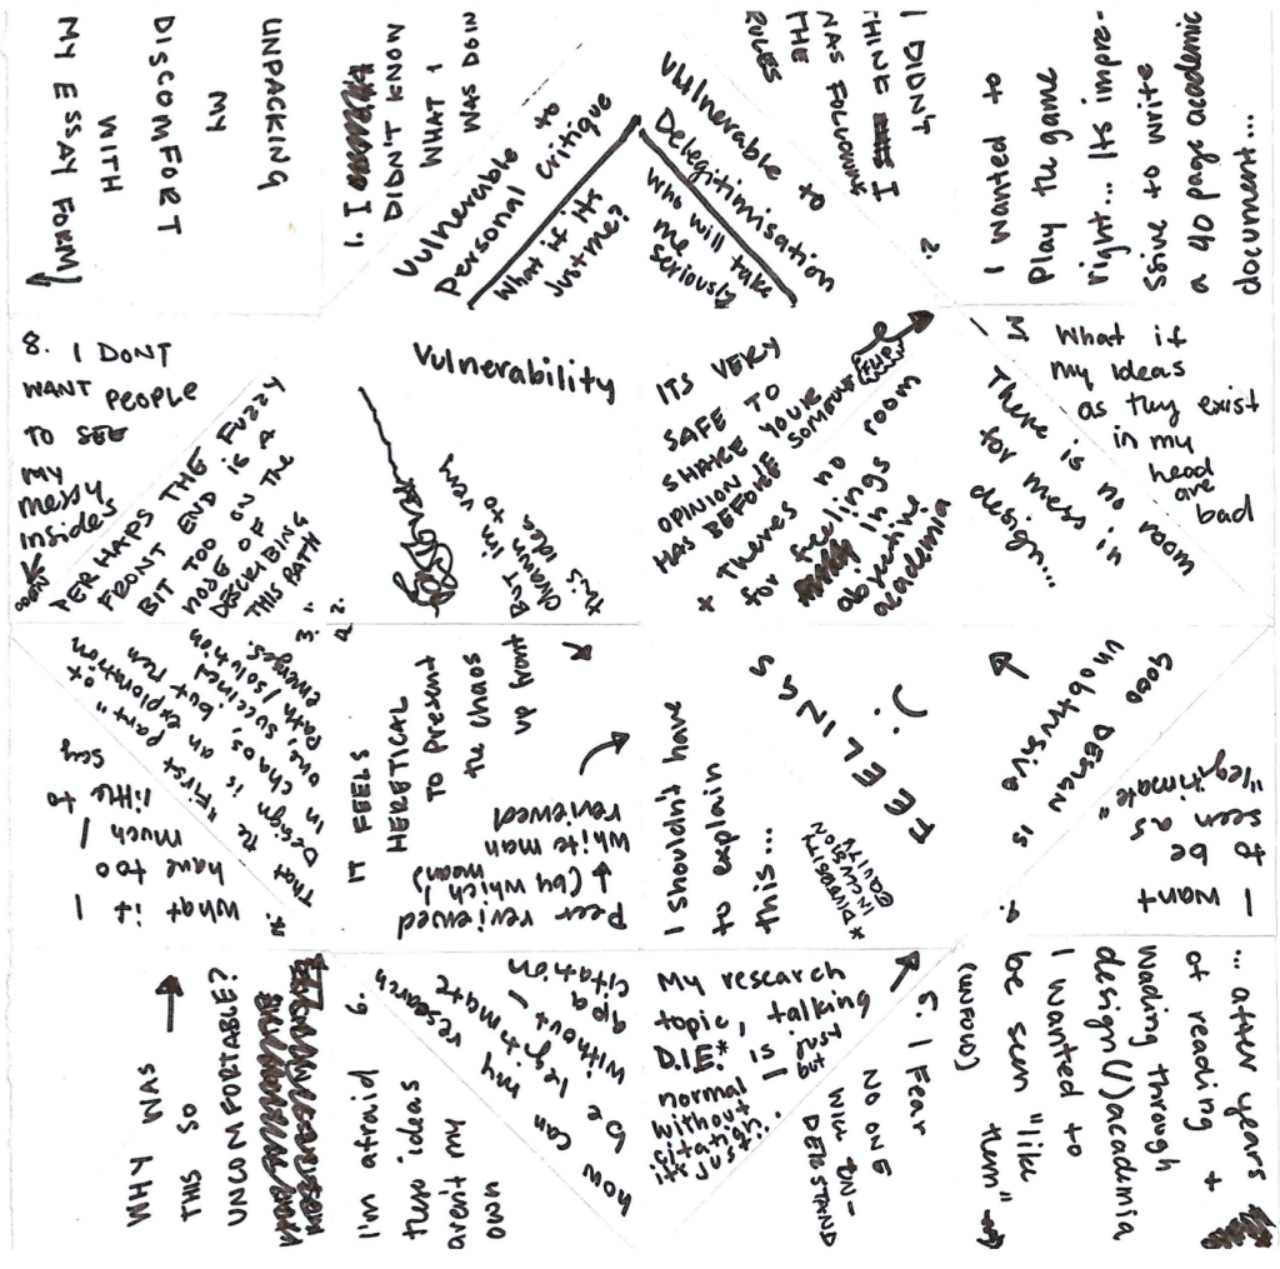 UNPACKING
MY
DISCOMFORT
WITH
MY ESSAY FORM
1. I
DIDN'T KNOW
WHAT I
WAS DOIN
Vulnerable to
personal critique
What if its
just me?
Vulnerable to
Delegitimisation
Who will take
me
seriously
2.
I DIDN'T
THINK I
WAS FOLLOWING
THE
RULES
I wanted to
play the game
right... Its impre-
ssive to write
a 40 page academic
document...
8. I DONT
WANT PEOPLE
TO SEE
my
messy
insides
PERHAPS THE FUZZY
FRONT END IS A
BIT TOO ON THE
NOSE OF
DESCRIBING
THIS PATH
Vulnerability
BUT I'm to very
drawn
this idea
ITS VERY
SAFE TO
SHARE YOUR
OPINION SOMEONE ELSE
HAS BEFORE
x Theres no room
for feelings
in
objective
academia
3. What if
my ideas
as they exist
in my
head
are
bad
There is no room
for mess in
design...
That the "First part" of
Design is an exploration
in chaos, but ren
one, succinct
path/solution
emerges.
4. What if I
have too
much I
little to
say
IT FEELS
HERETICAL
TO present
the chaos
up front
Peer reviewed
(by which I
mean)
white man
reviewed
I shouldn't have
to explain
this...
FEELINGS
:)
*DIVERSITY
INCLUSION
EQUITY
GOOD DESIGN IS
unobtrusive
7.
I want
to be
seen as
"legitimate"
WHY WAS
THIS SO
UNCOMFORTABLE?
6.
I'm afraid
these ideas
aren't my
own
how can my research
be legitimate
without -
apa
citation
My research
topic, talking
D.I.E.* is just
normal I but
without
citation..
it's just..
5. I Fear
NO ONE
WILL UN-
DERSTAND
... after years
of reading +
wading through
design(/)academia
I wanted to
be seen "like
them"
(UNFOLD)